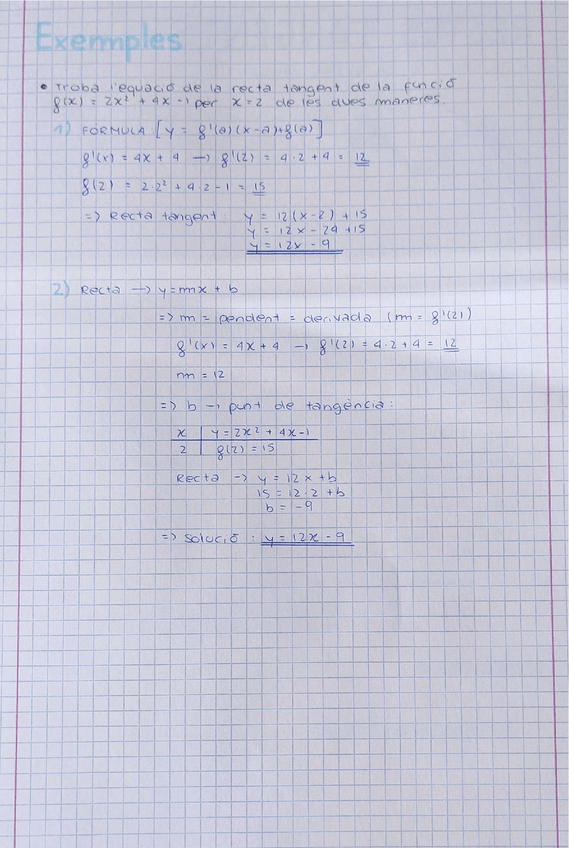 Exemples
• Troba l'equació de la recta tangent de la funció
f(x) = 2x² + 4x - 1 per x = 2 de les dues maneres.
1) FÓRMULA [y = f'(a)(x-a)+f(a)]
f'(x) = 4x + 4 → f'(2) = 4·2 + 4 = 12
f(2) = 2·2² + 4·2 - 1 = 15
=> Recta tangent y = 12(x-2) + 15
y = 12x - 24 + 15
y = 12x - 9
2) Recta → y = mx + b
=> m = pendent = derivada (m = f'(2)
f'(x) = 4x + 4 → f'(2) = 4·2 + 4 = 12
m = 12
=> b → punt de tangència:
x | y = 2x² + 4x - 1
2 | f(2) = 15
Recta → y = 12x + b
15 = 12·2 + b
b = -9
=> solució : y = 12x - 9